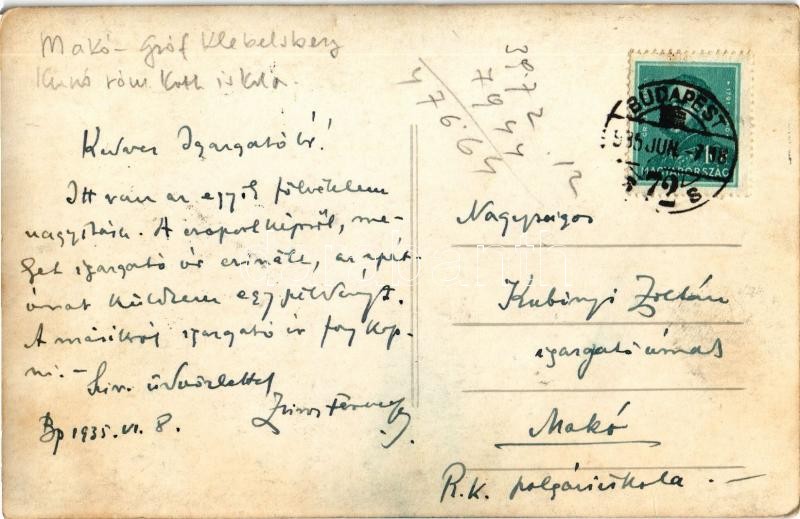 Makó - Gróf Klebelsberg
Kunó róm Kath iskola.
Kedves Igazgató Úr!
Itt van az egyik fölvételem
nagyitása. A csoportképről, me-
lyet igazgató úr csinált, az apát
úrnak küldtem egy példányt.
A másikról igazgató úr fog kap-
ni. -
Sziv. üdvözlettel
Ferenc
Bp 1935. VI. 8.
BUDAPEST
935 JUN.
72
MAGYARORSZÁG
Nagyságos
Kubinyi Zoltán
igazgató úrnak
Makó
R.K. polgáriiskola. -